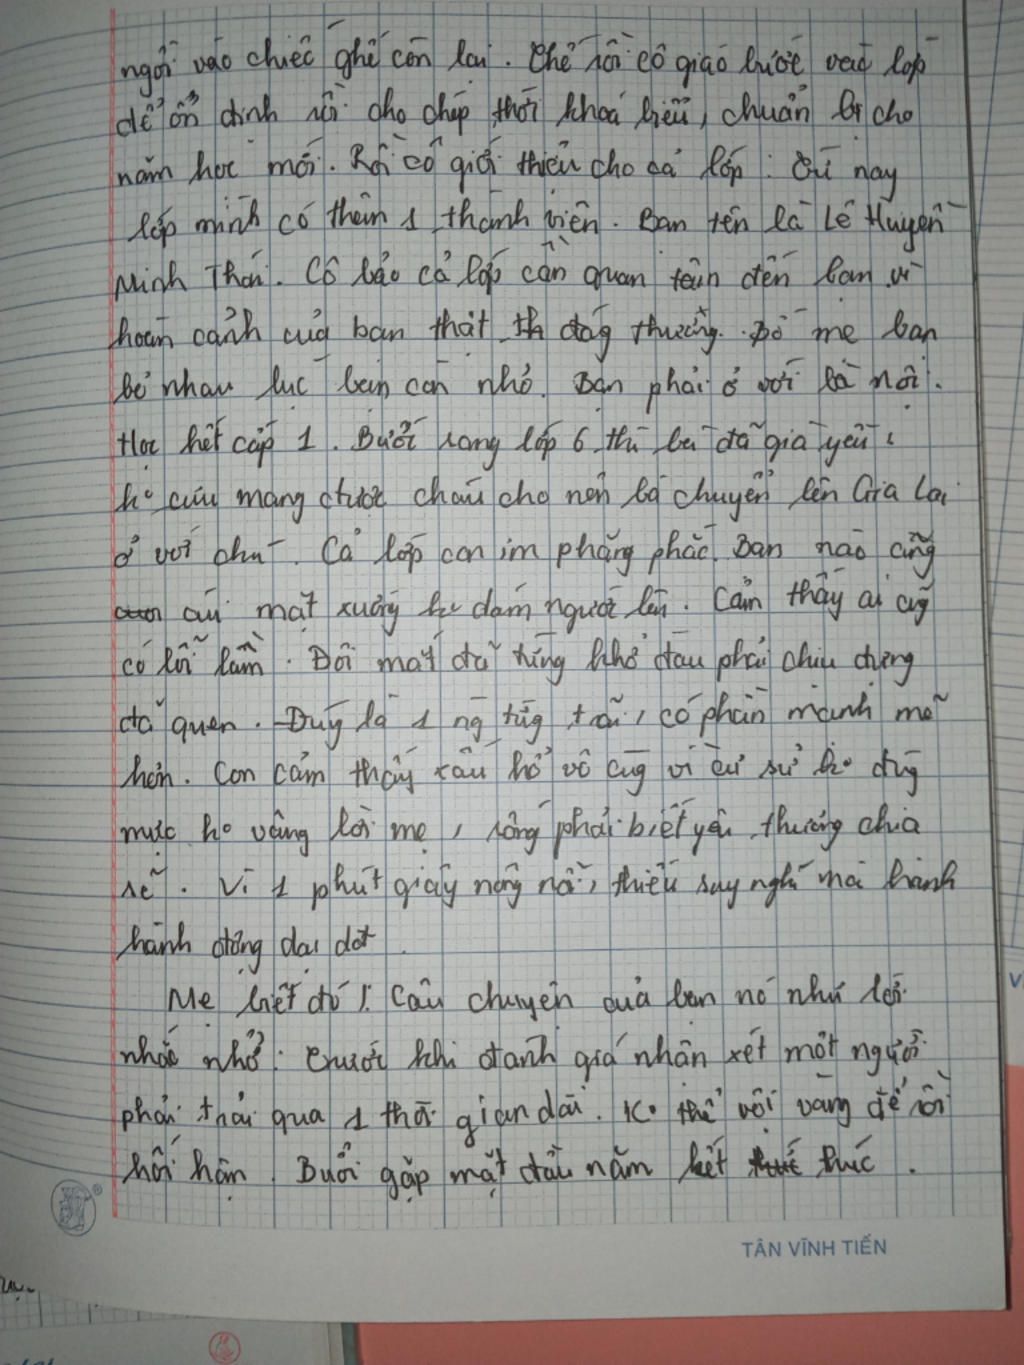 ngồi vào chiếc ghế còn lại. Thế rồi cô giáo bước vào lớp
để ổn định rồi cho chép thời khoá biểu, chuẩn bị cho
năm học mới. Rồi cô giới thiệu cho cả lớp: Từ nay
lớp mình có thêm 1 thành viên. Bạn tên là Lê Huyền
Minh Thái. Cô bảo cả lớp cần quan tâm đến bạn vì
hoàn cảnh của bạn thật th đág thương. Bố mẹ bạn
bỏ nhau lúc bạn còn nhỏ. Bạn phải ở với bà nội.
Học hết cấp 1. Bước sang lớp 6 thì bà đã già yếu,
ko cưu mang được cháu cho nên bà chuyển lên Gia Lai
ở với chú. Cả lớp con im phăng phắc. Bạn nào cũng
cúi mặt xuống ko dám ngước lên. Cảm thấy ai cũg
có lỗi lầm. Đôi mắt đã từng khổ đau phải chịu đựng
đã quen. Đúg là 1 ng từg trải, có phần mạnh mẽ
hơn. Con cảm thấy xấu hổ vô cùg vì cư sử ko đúg
mực ko vâng lời mẹ, sống phải biết yêu thương chia
sẻ. Vì 1 phút giây nông nổi, thiếu suy nghĩ mà hành
hành động dại dột.
Mẹ biết đó! Câu chuyện của bạn nó như lời
nhắc nhở: trước khi đánh giá nhận xét một người
phải trải qua 1 thời gian dài. Ko thể vội vàng để rồi
hối hận. Buổi gặp mặt đầu năm kết thúc.
TÂN VĨNH TIẾN